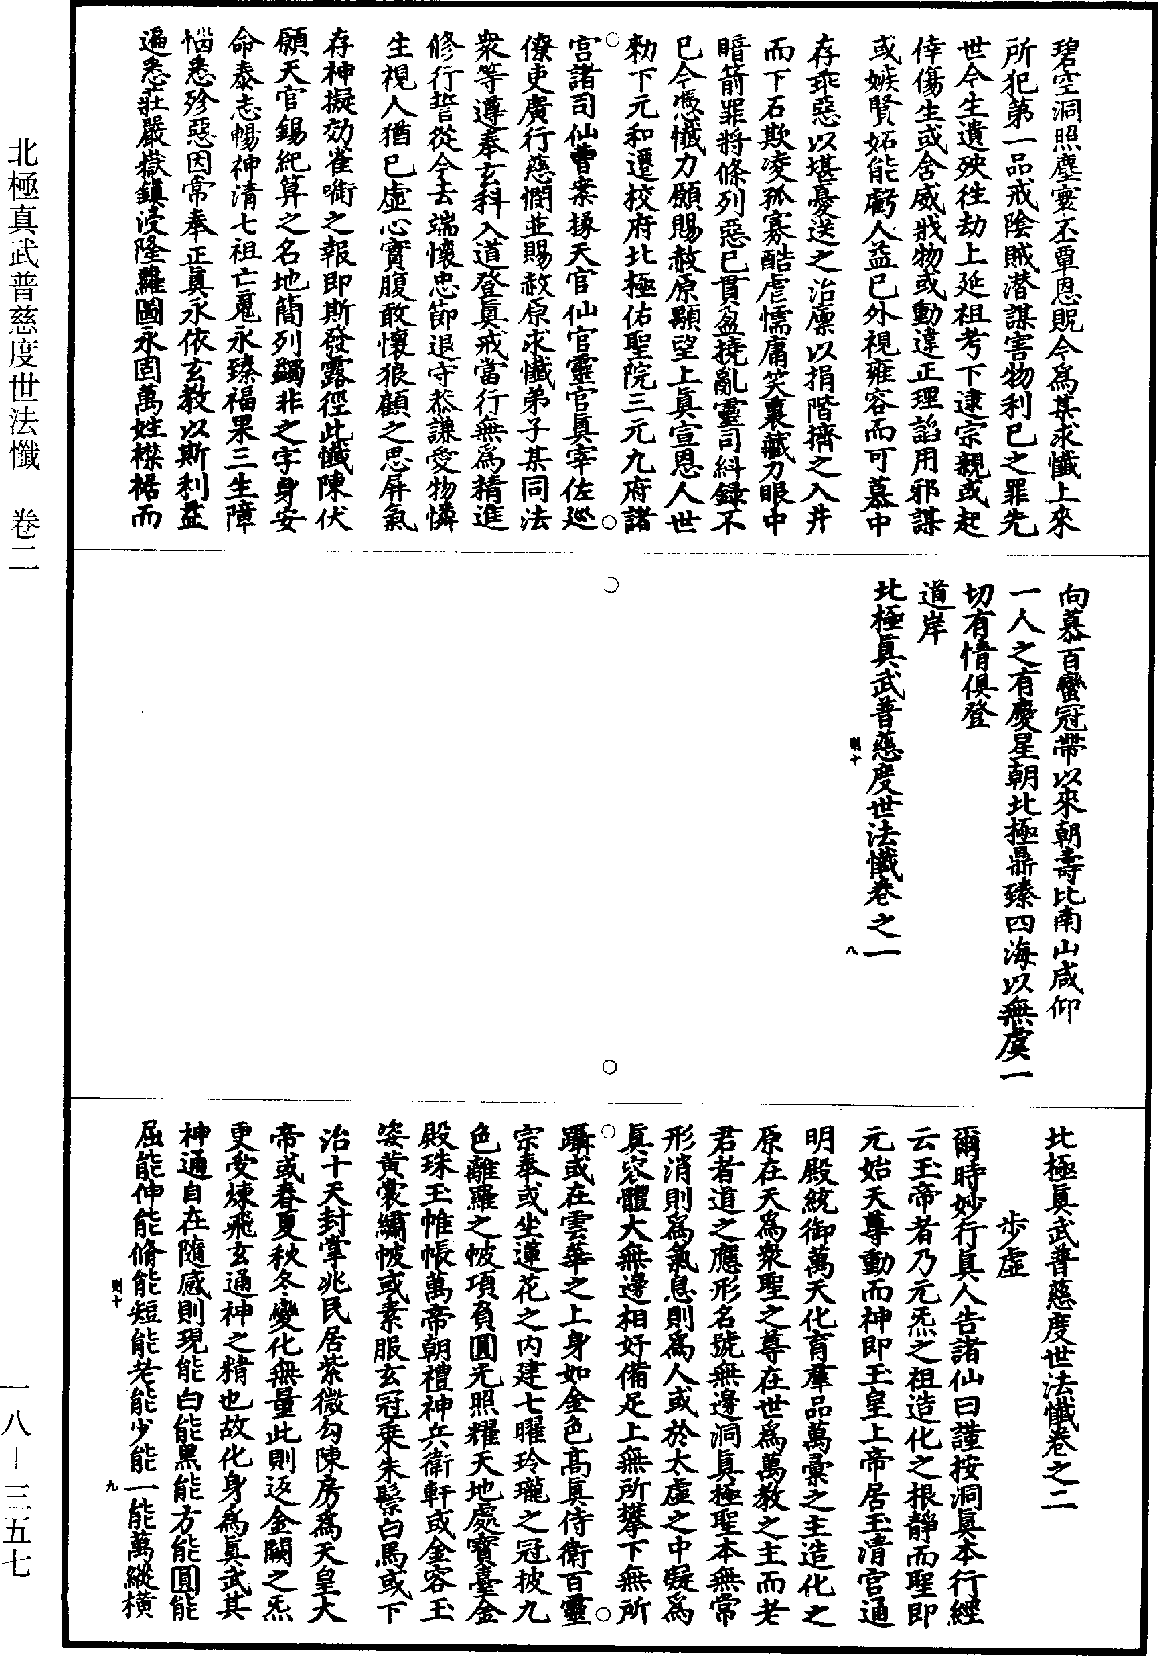 碧空洞照塵寰丕覃恩貺今爲某求懺上來
所犯第一品戒陰賊潛謀害物利已之罪先
世今生遺殃徃劫上延祖考下逮宗親或起
倖傷生或含威戕物或動違正理諂用邪謀
或嫉賢妬能虧人益已外視雍容而可慕中
存乖惡以堪憂送之治廪以捐階擠之入井
而下石欺凌孤寡酷虐懦庸笑裏藏刀眼中
暗箭罪將條列惡已貫盈撓亂靈司糾錄不
已今憑懺力願賜赦原顒望上眞宣恩人世
勑下元和遷校府北極佑聖院三元九府諸
宫諸司仙曹案掾天官仙官靈官眞宰佐廵
僚吏廣行慈憫並賜赦原求懺弟子某同法
衆等遵奉玄科入道登眞戒當行無爲精進
修行誓從今去端懷忠節退守恭謙愛物憐
生視人猶已虛心實腹敢懷狼顧之思屏氣
存神擬効雀啣之報即斯發露徑此懺陳伏
願天官錫紀算之名地簡列蠲非之字身安
命泰志暢神清七祖亡䰟永臻福果三生障
惱悉殄惡因常奉正眞永依玄教以斯利益
遍悉莊嚴嶽鎮浸隆羅圖永固萬姓襟裾而
向慕百蠻冠帶以來朝壽比南山咸仰
一人之有慶星朝北極鼎臻四海以無虞一
切有情俱登
道岸
北極眞武普慈度世法懺卷之一
八
北極眞武普慈度世法懺卷之二
步虛
爾時妙行眞人告諸仙曰謹按洞眞本行經
云玉帝者乃元炁之祖造化之根靜而聖即
元始天尊動而神即玉皇上帝居玉清宫通
明殿統御萬天化育羣品萬彙之主造化之
原在天爲衆聖之尊在世爲萬教之主而老
君者道之應形名號無邊洞眞極聖本無常
形消則爲氣息則爲人或於太虛之中凝爲
眞容體大無邊相好備足上無所攀下無所
躡或在雲華之上身如金色高眞侍衛百靈
宗奉或坐蓮花之內建七曜玲瓏之冠披九
色離羅之帔項負圓光照耀天地處寳臺金
殿珠玉帷帳萬帝朝禮神兵衛軒或金容玉
姿黃裳繡帔或素服玄冠乗朱鬃白馬或下
治十天封掌兆民居紫微勾陳房爲天皇大
帝或春夏秋冬變化無量此則返金闕之炁
更受煉飛玄通神之精也故化身爲眞武其
神通自在隨感則現能白能黑能方能圓能
屈能伸能脩能短能老能少能一能萬縱橫
九
北極真武普慈度世法懺　卷二
一八—三五七